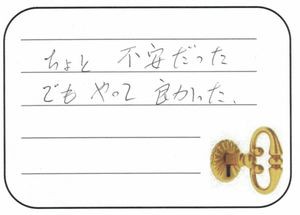 ちょと 不安だった
でも やって 良かった、